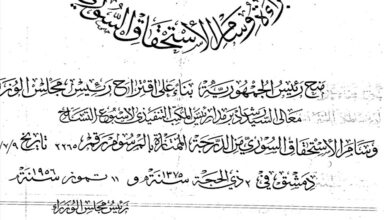 براءة وسام الاستحقاق السوري
منح رئيس الجمهورية بناء على اقتراح رئيس مجلس الوزراء
معالي السيد رئيس المكتب التنفيذي لأسبوع التسلح
وسام الاستحقاق السوري من الدرجة الممتازة بالمرسوم رقم ٢٢٦٥ تاريخ
دمشق في ٢ ذي الحجة سنة ١٣٧٥ هـ و ١١ تموز سنة ١٩٥٦ م
رئيس مجلس الوزراء